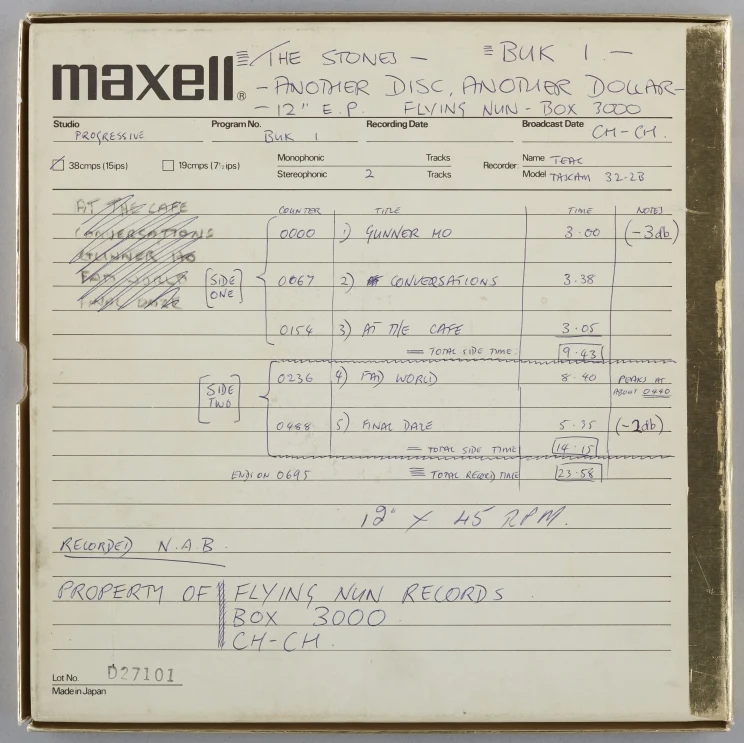 maxell®
THE STONES — BUK 1. —
— ANOTHER DISC, ANOTHER DOLLAR —
— 12" E.P. FLYING NUN - BOX 3000
Studio PROGRESSIVE Program No. BUK 1 Recording Date Broadcast Date CH-CH.
38cmps (15ips) 19cmps (7½ips) Monophonic Tracks Recorder: Name TEAC
Stereophonic 2 Tracks Model TASCAM 32-2B
AT THE CAFE
CONVERSATIONS
GUNNER HO
FAD WORLD
FINAL DAZE
COUNTER TITLE TIME NOTES
0000 1) GUNNER HO 3.00 (-3db)
SIDE ONE
0067 2) CONVERSATIONS 3.38
0154 3) AT THE CAFE 3.05
= TOTAL SIDE TIME 9.43
SIDE TWO
0236 4) FAD WORLD 8.40 PEAKS AT ABOUT 0440
0488 5) FINAL DAZE 5.35 (-2db)
= TOTAL SIDE TIME 14.15
ENDS ON 0695 TOTAL RECORD TIME 23.58
12" X 45 RPM.
RECORDED N.A.B.
PROPERTY OF FLYING NUN RECORDS
BOX 3000
CH-CH.
Lot No. D27101
Made in Japan